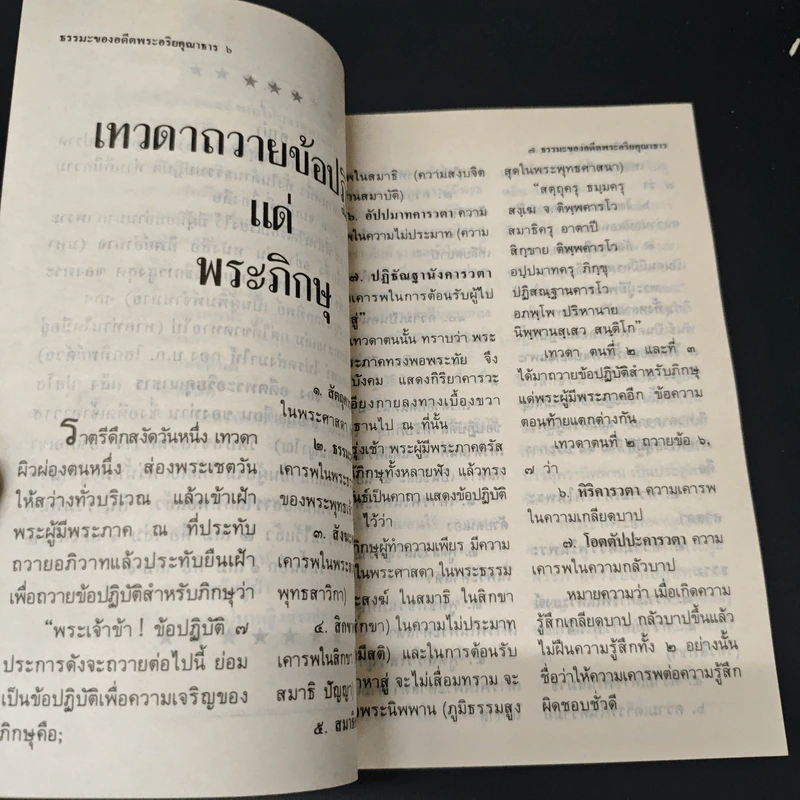 ธรรมะของอดีตพระอริยคุณาธาร ๖
เทวดาถวายข้อปฏิ
แด่
พระภิกษุ
ราตรีดึกสงัดวันหนึ่ง เทวดา
ผิวผ่องตนหนึ่ง ส่องพระเชตวัน
ให้สว่างทั่วบริเวณ แล้วเข้าเฝ้า
พระผู้มีพระภาค ณ ที่ประทับ
ถวายอภิวาทแล้วประทับยืนเฝ้า
เพื่อถวายข้อปฏิบัติสำหรับภิกษุว่า
"พระเจ้าข้า ! ข้อปฏิบัติ ๗
ประการดังจะถวายต่อไปนี้ ย่อม
เป็นข้อปฏิบัติเพื่อความเจริญของ
ภิกษุคือ;
๑. สัตถุ
ในพระศาสดา
๒. ธรรม
เคารพในพระ
ของพระพุทธเจ้
๓. สังฆ
เคารพในพระ
พุทธสาวิกา)
๔. สิกขา
เคารพในสิกขา
สมาธิ ปัญญา)
๕. สมาธิ
๗ ธรรมะของอดีตพระอริยคุณาธาร
พในสมาธิ (ความสงบจิต
านสมาบัติ)
๖. อัปปมาทคารวตา ความ
พในความไม่ประมาท (ความ
๗. ปฏิธัณฐานังคารวตา
เคารพในการต้อนรับผู้ไป
สู่"
เทวดาตนนั้น ทราบว่า พระ
ระภาคทรงพอพระทัย จึง
บังคม แสดงกิริยาคารวะ
อียงกายลงทางเบื้องขวา
ธานไป ณ ที่นั้น
รุ่งเช้า พระผู้มีพระภาคตรัส
ภิกษุทั้งหลายฟัง แล้วทรง
ธ์เป็นคาถา แสดงข้อปฏิบัติ
ไว้ว่า
ภิกษุผู้ทำความเพียร มีความ
พในพระศาสดา ในพระธรรม
ะสงฆ์ ในสมาธิ ในสิกขา
ขา) ในความไม่ประมาท
มีสติ) และในการต้อนรับ
าหาสู่ จะไม่เสื่อมทราม จะ
อพระนิพพาน (ภูมิธรรมสูง
สุดในพระพุทธศาสนา)
"สตฺถุครุ ธมฺมครุ
สงฺเฆ จ ติพฺพคารโว
สมาธิครุ อาตาปี
สิกฺขาย ติพฺพคารโว
อปฺปมาทครุ ภิกฺขุ
ปฏิสณฺฐานคารโว
อภพฺโพ ปริหานาย
นิพฺพานสฺเสว สนฺติโก"
เทวดา ตนที่ ๒ และที่ ๓
ได้มาถวายข้อปฏิบัติสำหรับภิกษุ
แด่พระผู้มีพระภาคอีก ข้อความ
ตอนท้ายแตกต่างกัน
เทวดาตนที่ ๒ ถวายข้อ ๖,
๗ ว่า
๖. หิริคารวตา ความเคารพ
ในความเกลียดบาป
๗. โอตตัปปะคารวตา ความ
เคารพในความกลัวบาป
หมายความว่า เมื่อเกิดความ
รู้สึกเกลียดบาป กลัวบาปขึ้นแล้ว
ไม่ฝืนความรู้สึกทั้ง ๒ อย่างนั้น
ชื่อว่าให้ความเคารพต่อความรู้สึก
ผิดชอบชั่วดี